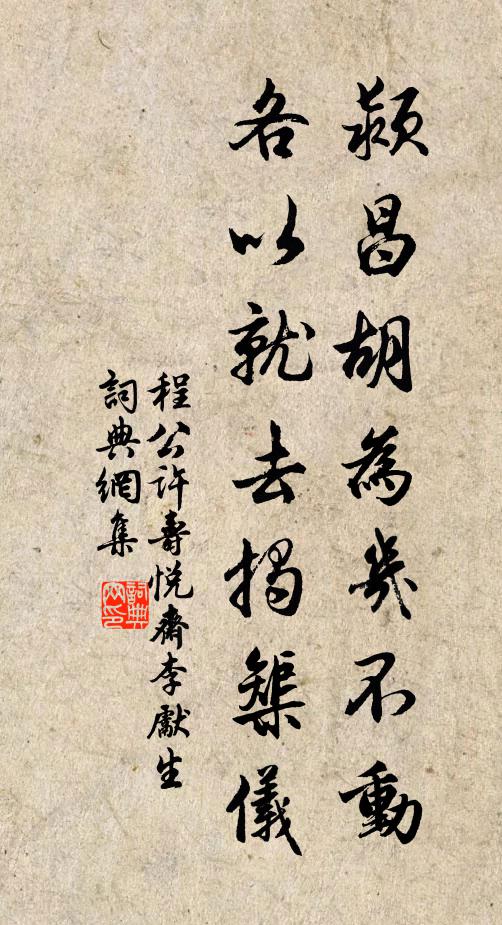 潁昌胡為幾不動
各以就去揭榘儀
程公許壽悦齋李獻生
詞典網集
詞典網印